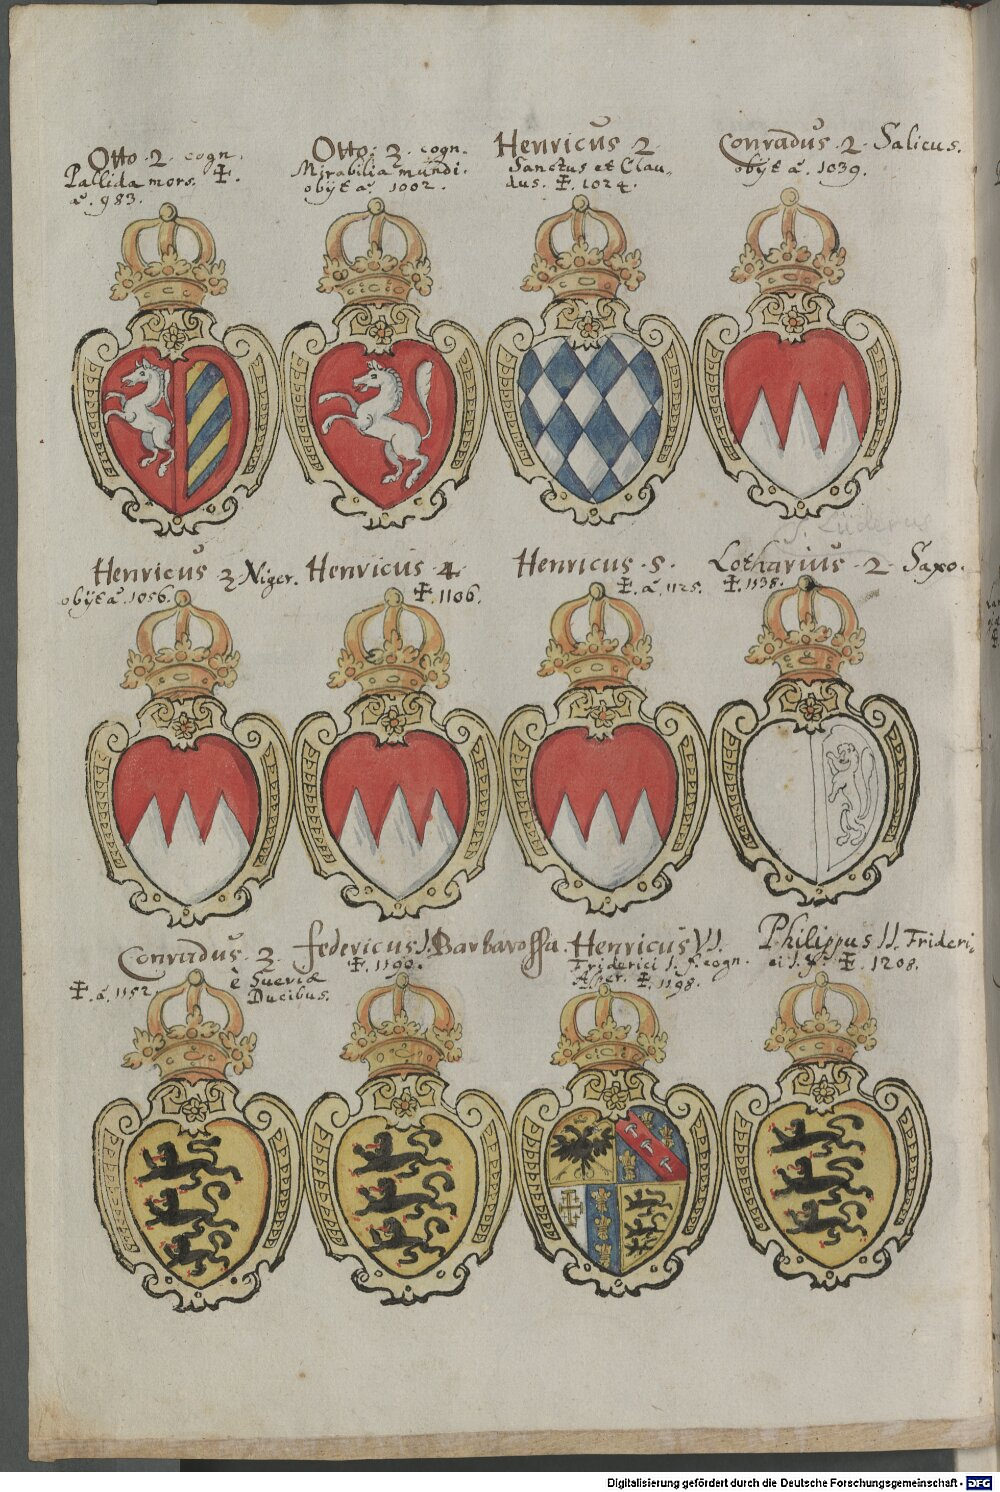 Otto · 2 · cogn.
Pallida mors. ☩.
a°. 983.
Otto · 3 · cogn.
Mirabilia mundi.
obijt a°. 1002.
Henricus · 2
Sanctus et Clau-
dus. ☩. 1024.
Conradus · 2 · Salicus.
obijt a°. 1039.
Henricus 3 Niger.
obijt a°. 1056.
Henricus · 4
☩. 1106.
Henricus · 5 ·
☩. a°. 1125.
Lotharius · 2 · Saxo.
☩. 1138.
Conradus · 3 ·
è Sueviæ
Ducibus.
☩. a°. 1152
Federicus I. Barbarossa.
☩. 1190.
Henricus VI.
Friderici I. f. cogn.
Asper. ☩. 1198.
Philippus II. Frideri-
ci I. f. ☩. 1208.
Digitalisierung gefördert durch die Deutsche Forschungsgemeinschaft - DFG